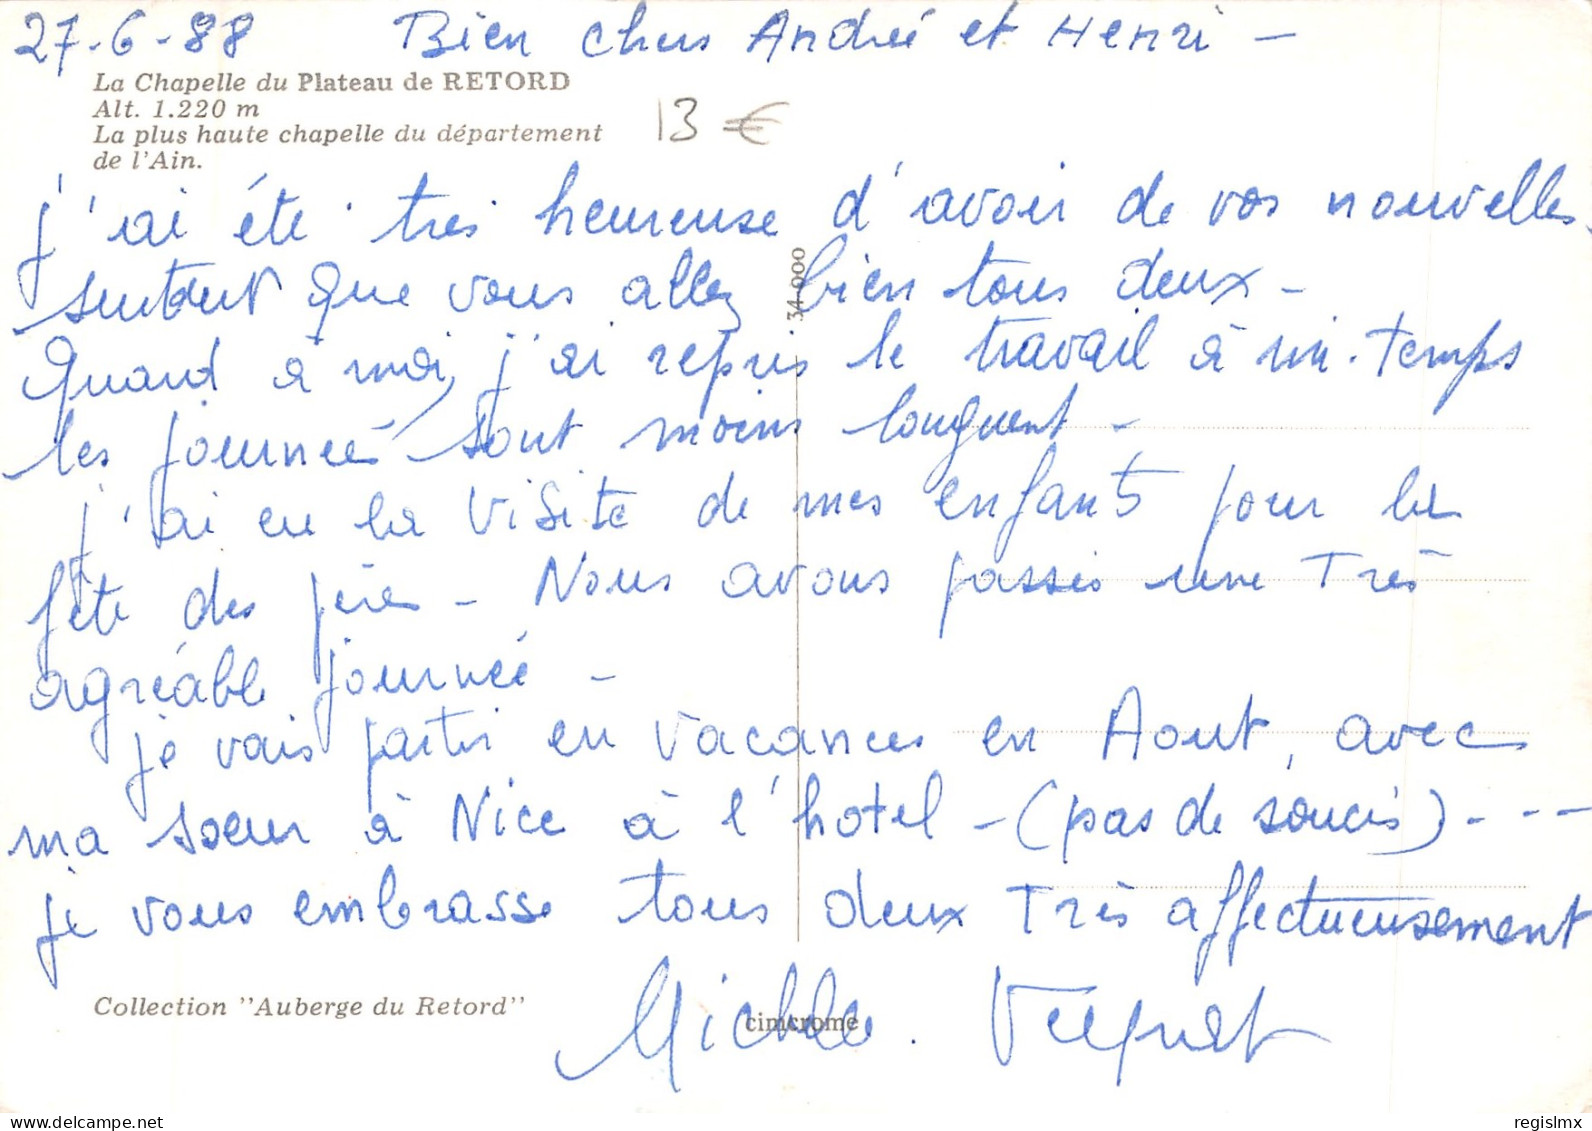 27-6-88 Bien chers André et Henri -
La Chapelle du Plateau de RETORD
Alt. 1.220 m
La plus haute chapelle du département
de l'Ain.
13 €
j'ai été très heureuse d'avoir de vos nouvelles.
surtout que vous allez bien tous deux -
Quand à moi, j'ai repris le travail à mi-temps
les journeés sont moins longuent -
j'ai eu la visite de mes enfants pour la
fête des pères - Nous avons passés une Très
agréable journeé -
je vais partir en vacances en Aout, avec
ma soeur à Nice à l'hotel - (pas de soucis) - - -
je vous embrasse tous deux Très affectueusement
Michele.
34-000
Collection "Auberge du Retord"
cimcrome
Delcampe.net
regislmx